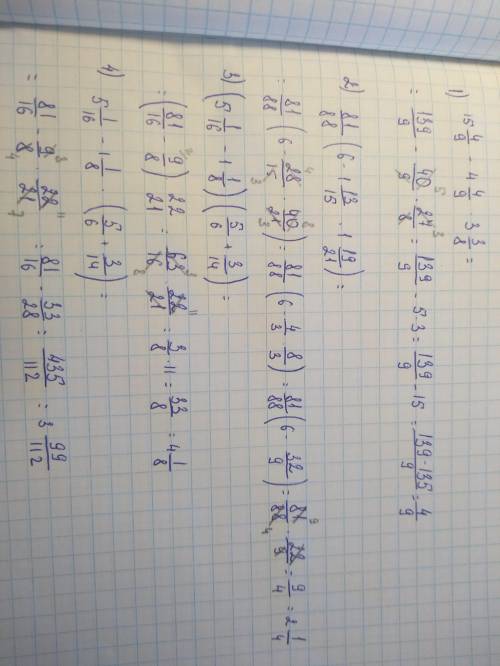 1) 15 4/9 - 4 4/9 · 3 3/8 =
= 139/9 - 40/9 · 27/8 = 139/9 - 5·3 = 139/9 - 15 = (139-135)/9 = 4/9
2) 81/88 (6 - 1 13/15 · 1 19/21) =
= 81/88 (6 - 28/15 · 40/21) = 81/88 (6 - 4/3 · 8/3) = 81/88 (6 - 32/9) = 81/88 · 22/9 = 9/4 = 2 1/4
3) (5 1/16 - 1 1/8)(5/6 + 3/14) =
= (81/16 - 9/8) 22/21 = 63/16 · 22/21 = 3/8 · 11 = 33/8 = 4 1/8
4) 5 1/16 - 1 1/8 · (5/6 + 3/14) =
= 81/16 - 9/8 · 22/21 = 81/16 - 33/28 = 435/112 = 3 99/112